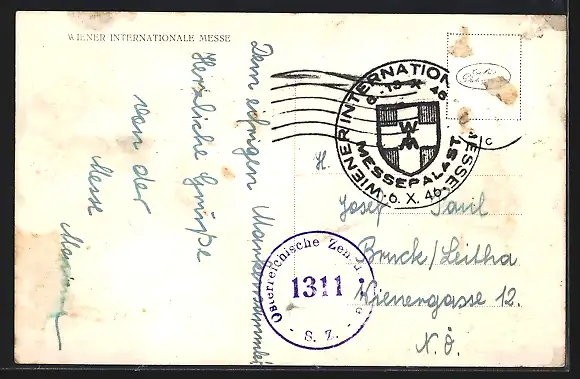 WIENER INTERNATIONALE MESSE
Dem eifrigen Markensammler
Herzliche Grüße
von der
Messe
WIENER INTERNATIONALE MESSE
6.-13.X.46
WM
MESSEPALAST
6.X.46
H.
Josef Paul
Bruck/Leitha
Wienergasse 12.
N.Ö.
Österreichische Zensur
1311
- S. Z. -